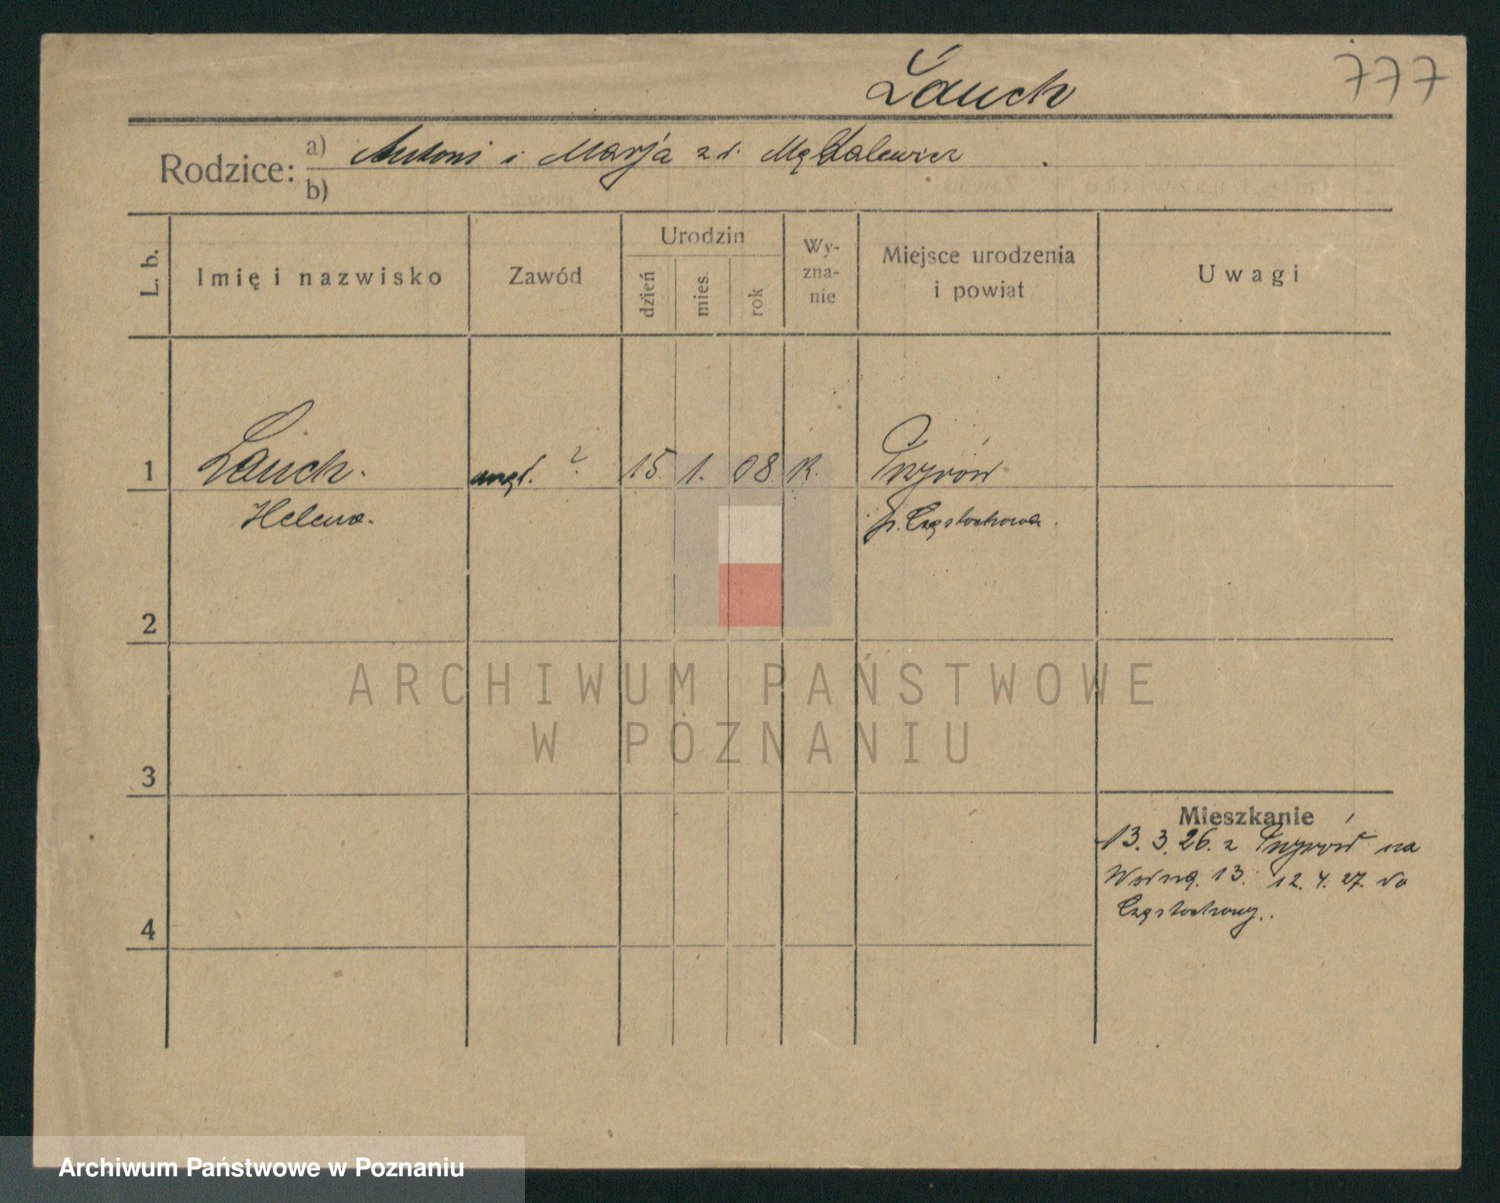 Lauch
777
Rodzice: a) Antoni i Marja z d.
b)
L. b.
Imię i nazwisko
Zawód
Urodzin
dzień
mies.
rok
Wy-
zna-
nie
Miejsce urodzenia
i powiat
Uwagi
1
Lauch.
?
15. 1. 08
Przyrów
Helena.
p. Częstochowa.
2
ARCHIWUM PAŃSTWOWE
W POZNANIU
3
Mieszkanie
13. 3. 26. z Przyrów na
Wodną. 13. 12. 4. 27. do
Częstochowy.
4
Archiwum Państwowe w Poznaniu